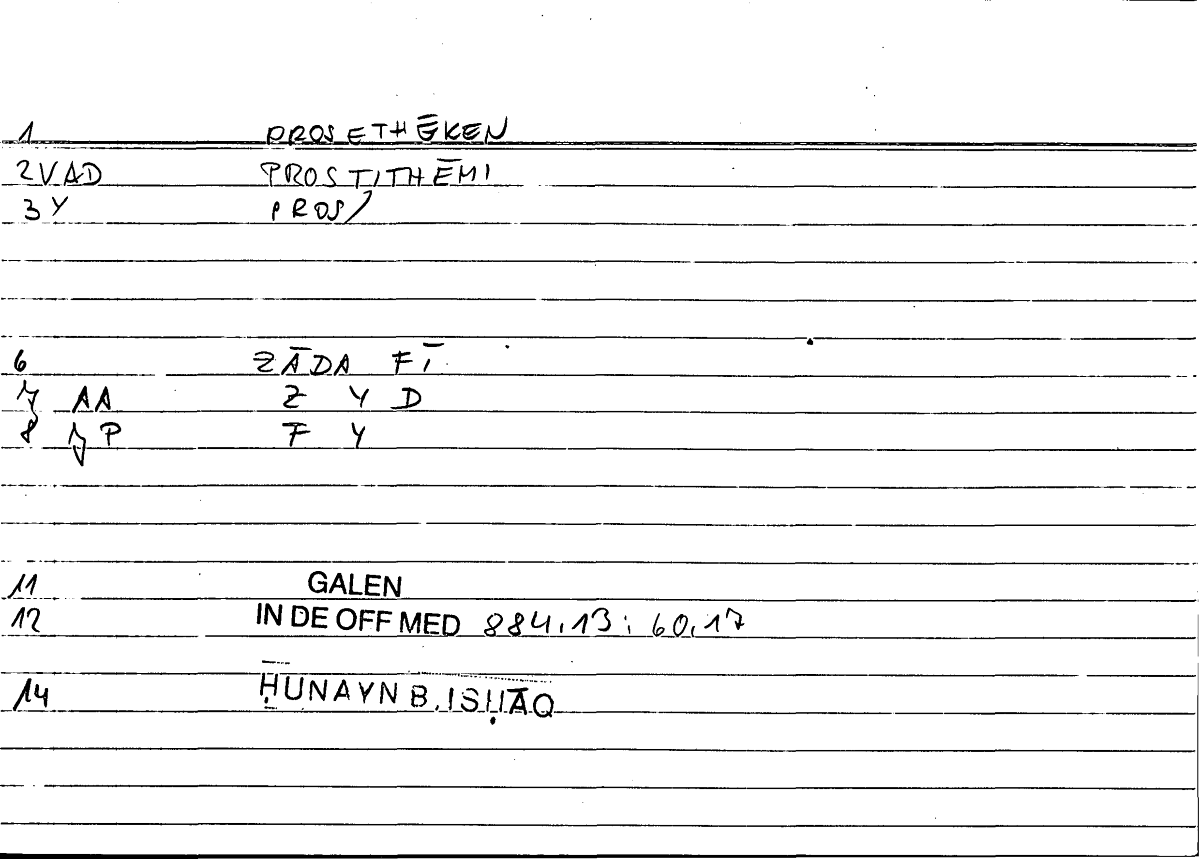 1 PROSETHĒKEN
2VAD PROSTITHĒMI
3Y PROS/
6 ZĀDA FĪ
7 AA Z Y D
8 7P F Y
11 GALEN
12 IN DE OFF MED 884,13; 60,17
14 ḤUNAYN B. ISḤĀQ